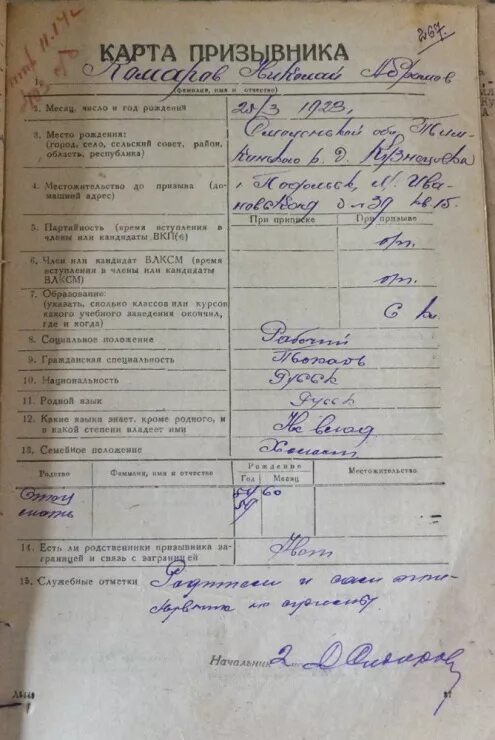 267.
КАРТА ПРИЗЫВНИКА
1. Комаров Николай Абрамов
(фамилия, имя и отчество)
2. Месяц, число и год рождения 25/3 1923
3. Место рождения: Смоленской обл.
(город, село, сельский совет, район, р. д. Кузнецова
область, республика)
4. Местожительство до призыва (до- г. Подольск, М. Ива-
машний адрес) д № 39 кв. 15.
При приписке При призыве
5. Партийность (время вступления в
члены или кандидаты ВКП(б)
6. Член или кандидат ВЛКСМ (время
вступления в члены или кандидаты
ВЛКСМ)
7. Образование:
(указать, сколько классов или курсов 6 кл
какого учебного заведения окончил,
где и когда)
8. Социальное положение Рабочий
9. Гражданская специальность
10. Национальность Русск
11. Родной язык Русск
12. Какие языки знает, кроме родного, и Не влад
в какой степени владеет ими
13. Семейное положение Холост
Родство Фамилия, имя и отчество Рождение Местожительство
Год Месяц
Отец
мать
14. Есть ли родственники призывника за- Нет
границей и связь с заграницей
15. Служебные отметки Родители и сам
Начальник 2